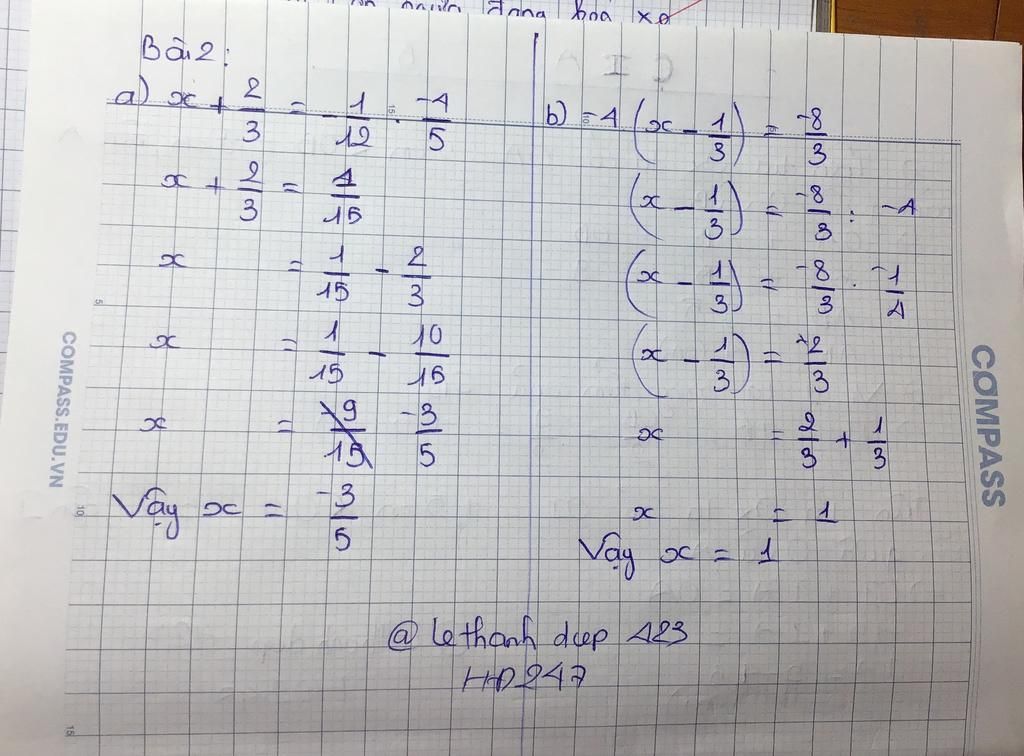 Bài 2:
a) x + 2/3 = - 1/12 . -4/5
x + 2/3 = 1/15
x = 1/15 - 2/3
x = 1/15 - 10/15
x = -9/15 -3/5
Vậy x = -3/5
b) -4 (x - 1/3) = -8/3
(x - 1/3) = -8/3 : -4
(x - 1/3) = -8/3 . -1/4
(x - 1/3) = 2/3
x = 2/3 + 1/3
x = 1
Vậy x = 1
@ lethanh diep 423
HD247
COMPASS.EDU.VN
COMPASS
5
10
15
15